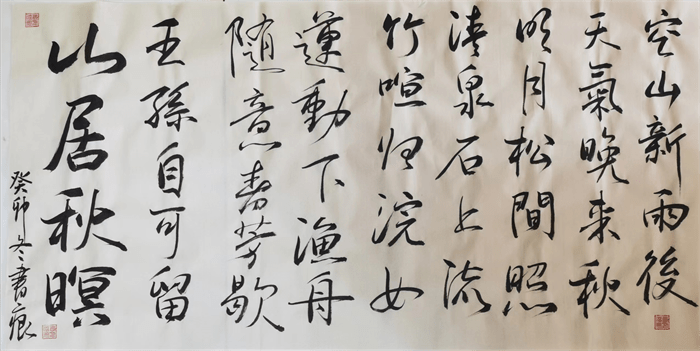 空山新雨後
天氣晚来秋
明月松間照
清泉石上流
竹喧归浣女
蓮動下渔舟
随意春芳歇
王孫自可留
山居秋暝
癸卯冬書痕